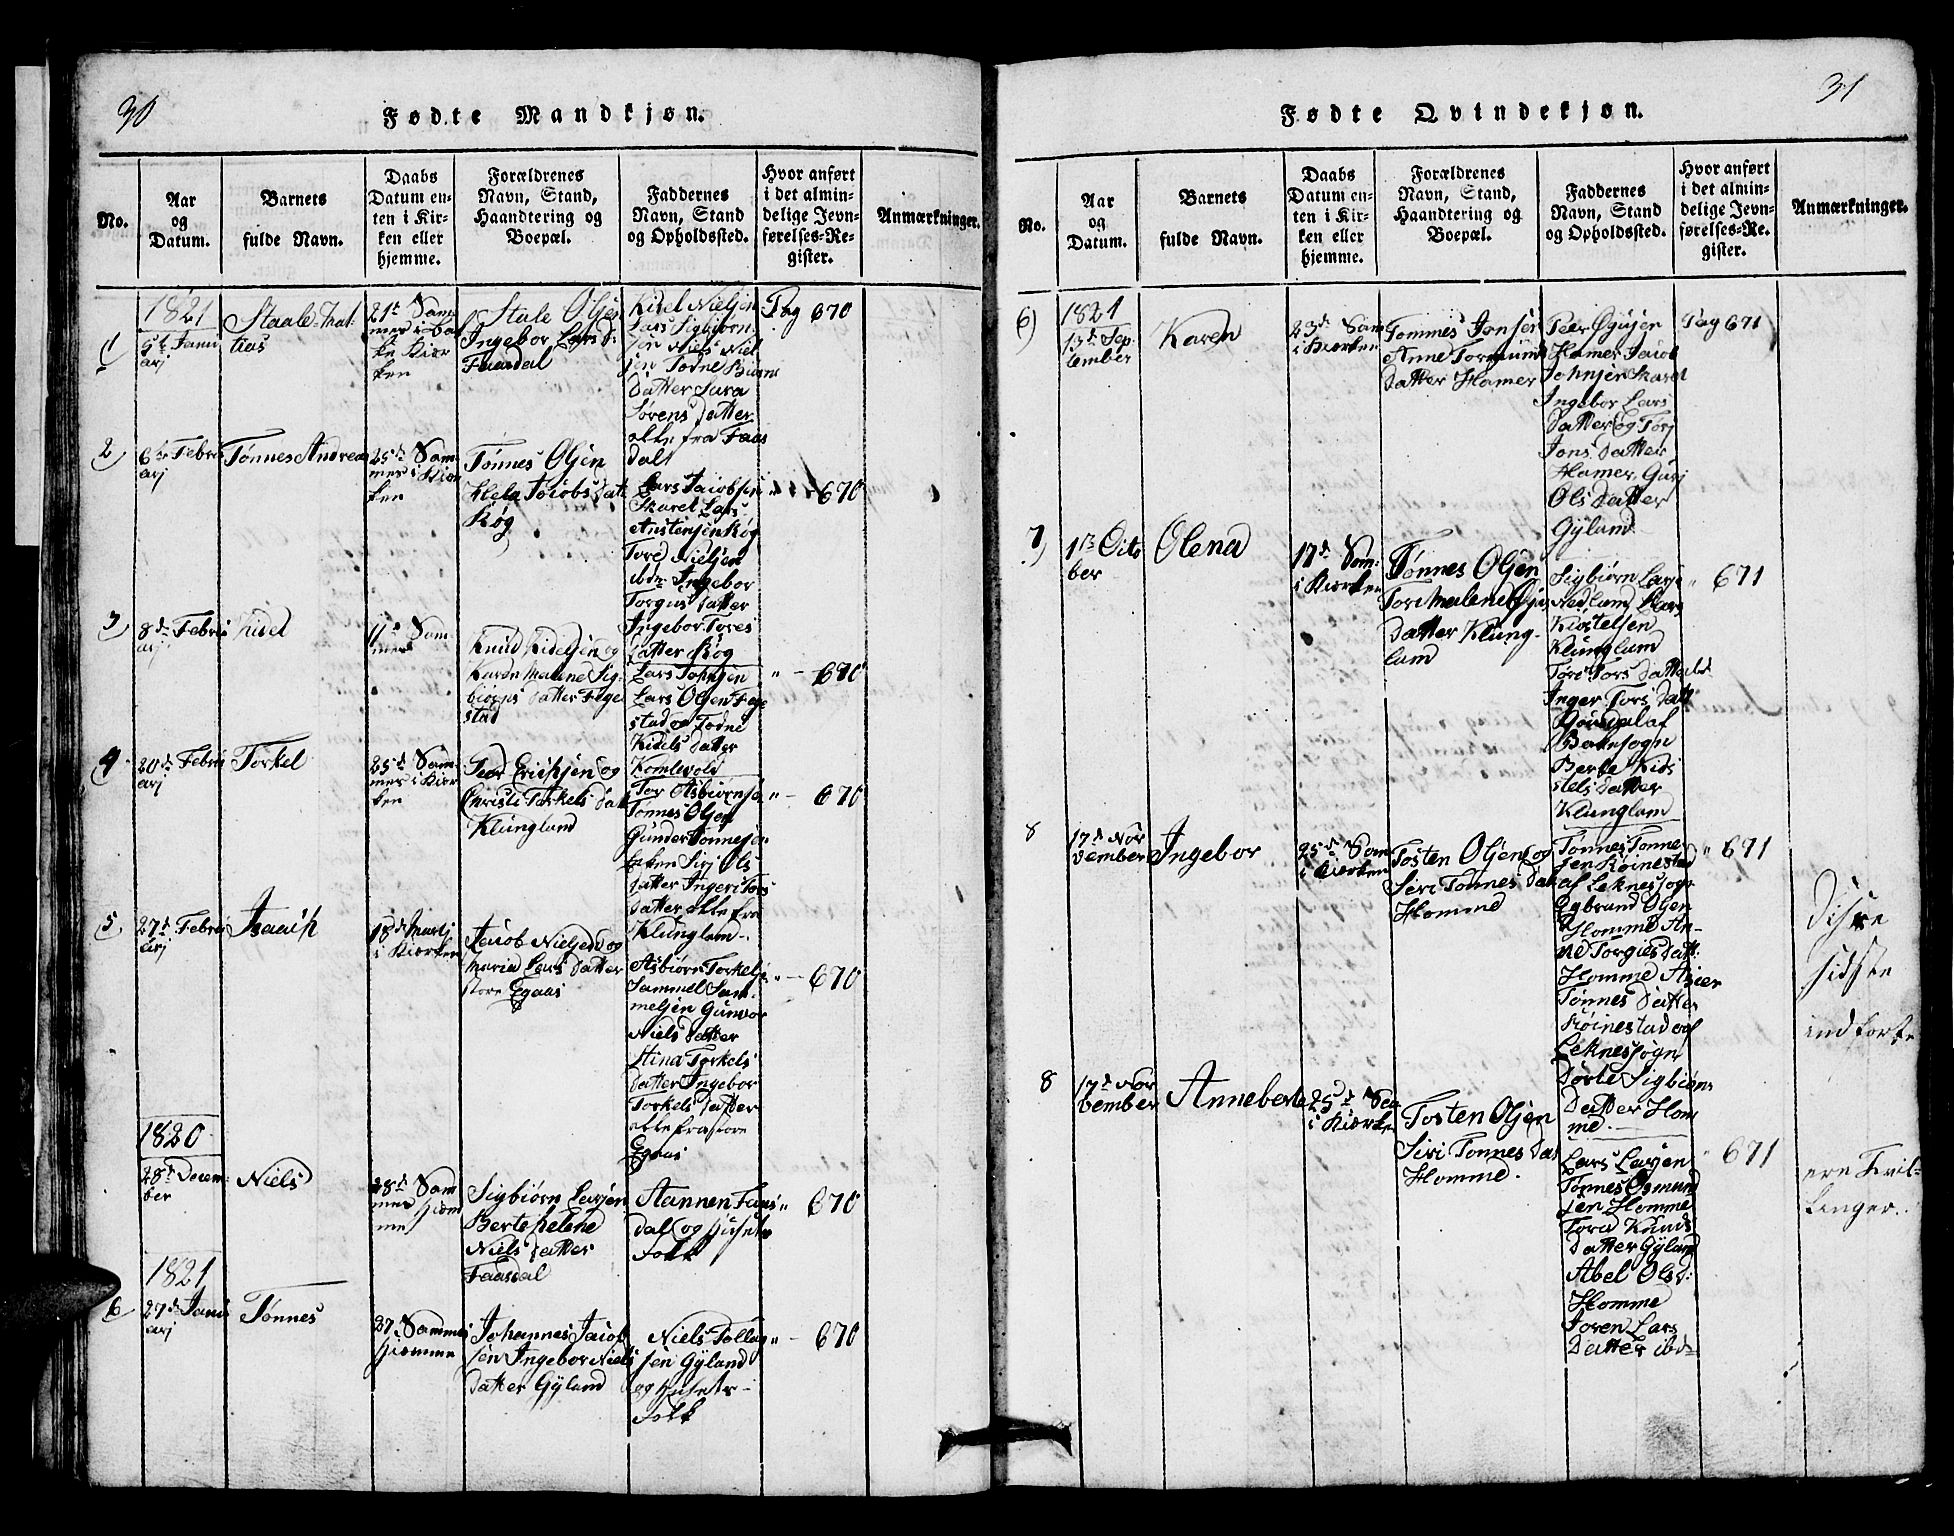 30
Fødte Mandkjøn.
No.
Aar
og
Datum.
Barnets
fulde Navn.
Daabs
Datum en-
ten i Kir-
ken eller
hjemme.
Forældrenes
Navn, Stand,
Haandtering og
Boepæl.
Faddernes
Navn, Stand
og Opholdssted.
Hvor anført
i det almin-
delige Jevn-
førelses-Re-
gister.
Anmærkninger.
1821
1)
Janu
arj
Staale Mat
tias
21de
ken
Stale Olsen
Ingebor Lars d:
Faasdal
Kidel Nielsen
Lars Sigbiørn-
sen Niels Niel
sen Todne Biørns
Datter Sara
Sørens Datter
alle fra Faas
dal
Pag 670
2)
6te Febru
arj
Tønnes Andreas
25de Som
mer i Kiør
ken
Tønnes Olsen
Jacobs Dat
Røg
Lars Jacobsen
Skarel Lars
Austensen Røg
Tore Nielsen
ibdn Ingebor
Torgus Datter
Ingebor Tores
Datter Røg
" 670
3)
8de Febru
arj
Kidel
11te Som
mer
Knud Kidelsen og
Karen Malene Sig-
biørns Datter Fege
stad
Lars Johnsen
Lars Olsen Fege
stad og Todne
Kidels Datter
Komlevold
" 670
4)
20de Febru
arj
Torkel
25de Som
mer i Kiør
ken
Peder Erichsen og
Christi Torkels Dat
Klungland
Tor Asbiørnsen
Tønnes Olsen
Gunder Tønnesen
Sirj Ols
Datter Ingeri Tors
Datter alle fra
Klunglam
" 670
5)
27de Febru
arj
Isaach
18de Martj
i Kiørken
Jacob Nielsen og
Maria Lars Datter
store Egaas
Asbiørn Torkels
Sammel Sam-
melsen Gunvor
Niels Datter
Stina Torkels
Datter Ingebor
Torkels Datter
alle fra store
Egaas
" 670
1820
28de Decem-
ber
Niels
28de Som
mer Hiem
me
Sigbiørn Larsen
Berte Helene
Niels Datter
Faasdal
Stannen Faas
dal og Husets
Folk
" 670
1821
6)
27de Janu
arj
Tønnes
27 Sammes
Hiemme
Johannes Jacob
sen Ingebor Niels
Datter Gÿland
Niels Tollag
sen Gÿland
og Husets-
Folk
" 670
31
Fødte Qvindekjøn.
No.
Aar
og
Datum.
Barnets
fulde Navn.
Daabs
Datum en-
ten i Kir-
ken eller
hjemme.
Forældrenes
Navn, Stand,
Haandtering og
Boepæl.
Faddernes
Navn, Stand
og Opholdssted.
Hvor anført
i det almin-
delige Jevn-
førelses-Re-
gister.
Anmærkninger.
1821
6)
13de Sep
tember
Karen
23de Som
i Kiørken
Tommes Jonsen
Anne Tormunds
Datter Hamer
Peer Ogusen
Hamer Jacob
Johnsen Skarel
Ingebor Lars
Datter og Torj
Jons Datter
Hamer Gurj
Ols Datter
Gÿland
Pag 671
7)
1ste Octo
ber
Olena
17de Som:
i Kiørken
Tønnes Olsen
Tore Malene
Datter Klung-
lam
Sigbiørn Larse
Nedlam Lars
Kiøstelsen
Klunglam
Tore Tors Datter
Inger Tors Datt
af
Bakesogn
Berte Kids
stels Datter
Klunglam
" 671
8
17de Nov
vember
Ingebor
25de Som
i Kiørken
Tosten Olsen og
Seri Tønnes Dat
Homme
Tønnes Tønne
sen Røinestad
af Leknessogn
Ogbrand Olsen
Homme An-
ne Torgies Datt:
Homme Asier
Tønnes Datter
Røinestad af
Leknessogn
Dorte Sigbiøns
Datter Hom
me.
" 671
Disse
sidste
indførte
8
17de Nov
vember
Anneberte
25de Som
i Kiørken
Tosten Olsen
Siri Tønnes Dat
Homme.
Lars Larsen
Tønnes Osmund
sen Homme
Tora Knuds
Datter Gÿland
Abel Olsd:
Homme
Joren Lars
Datter ibd:
" 671
ere Tvil-
linger.